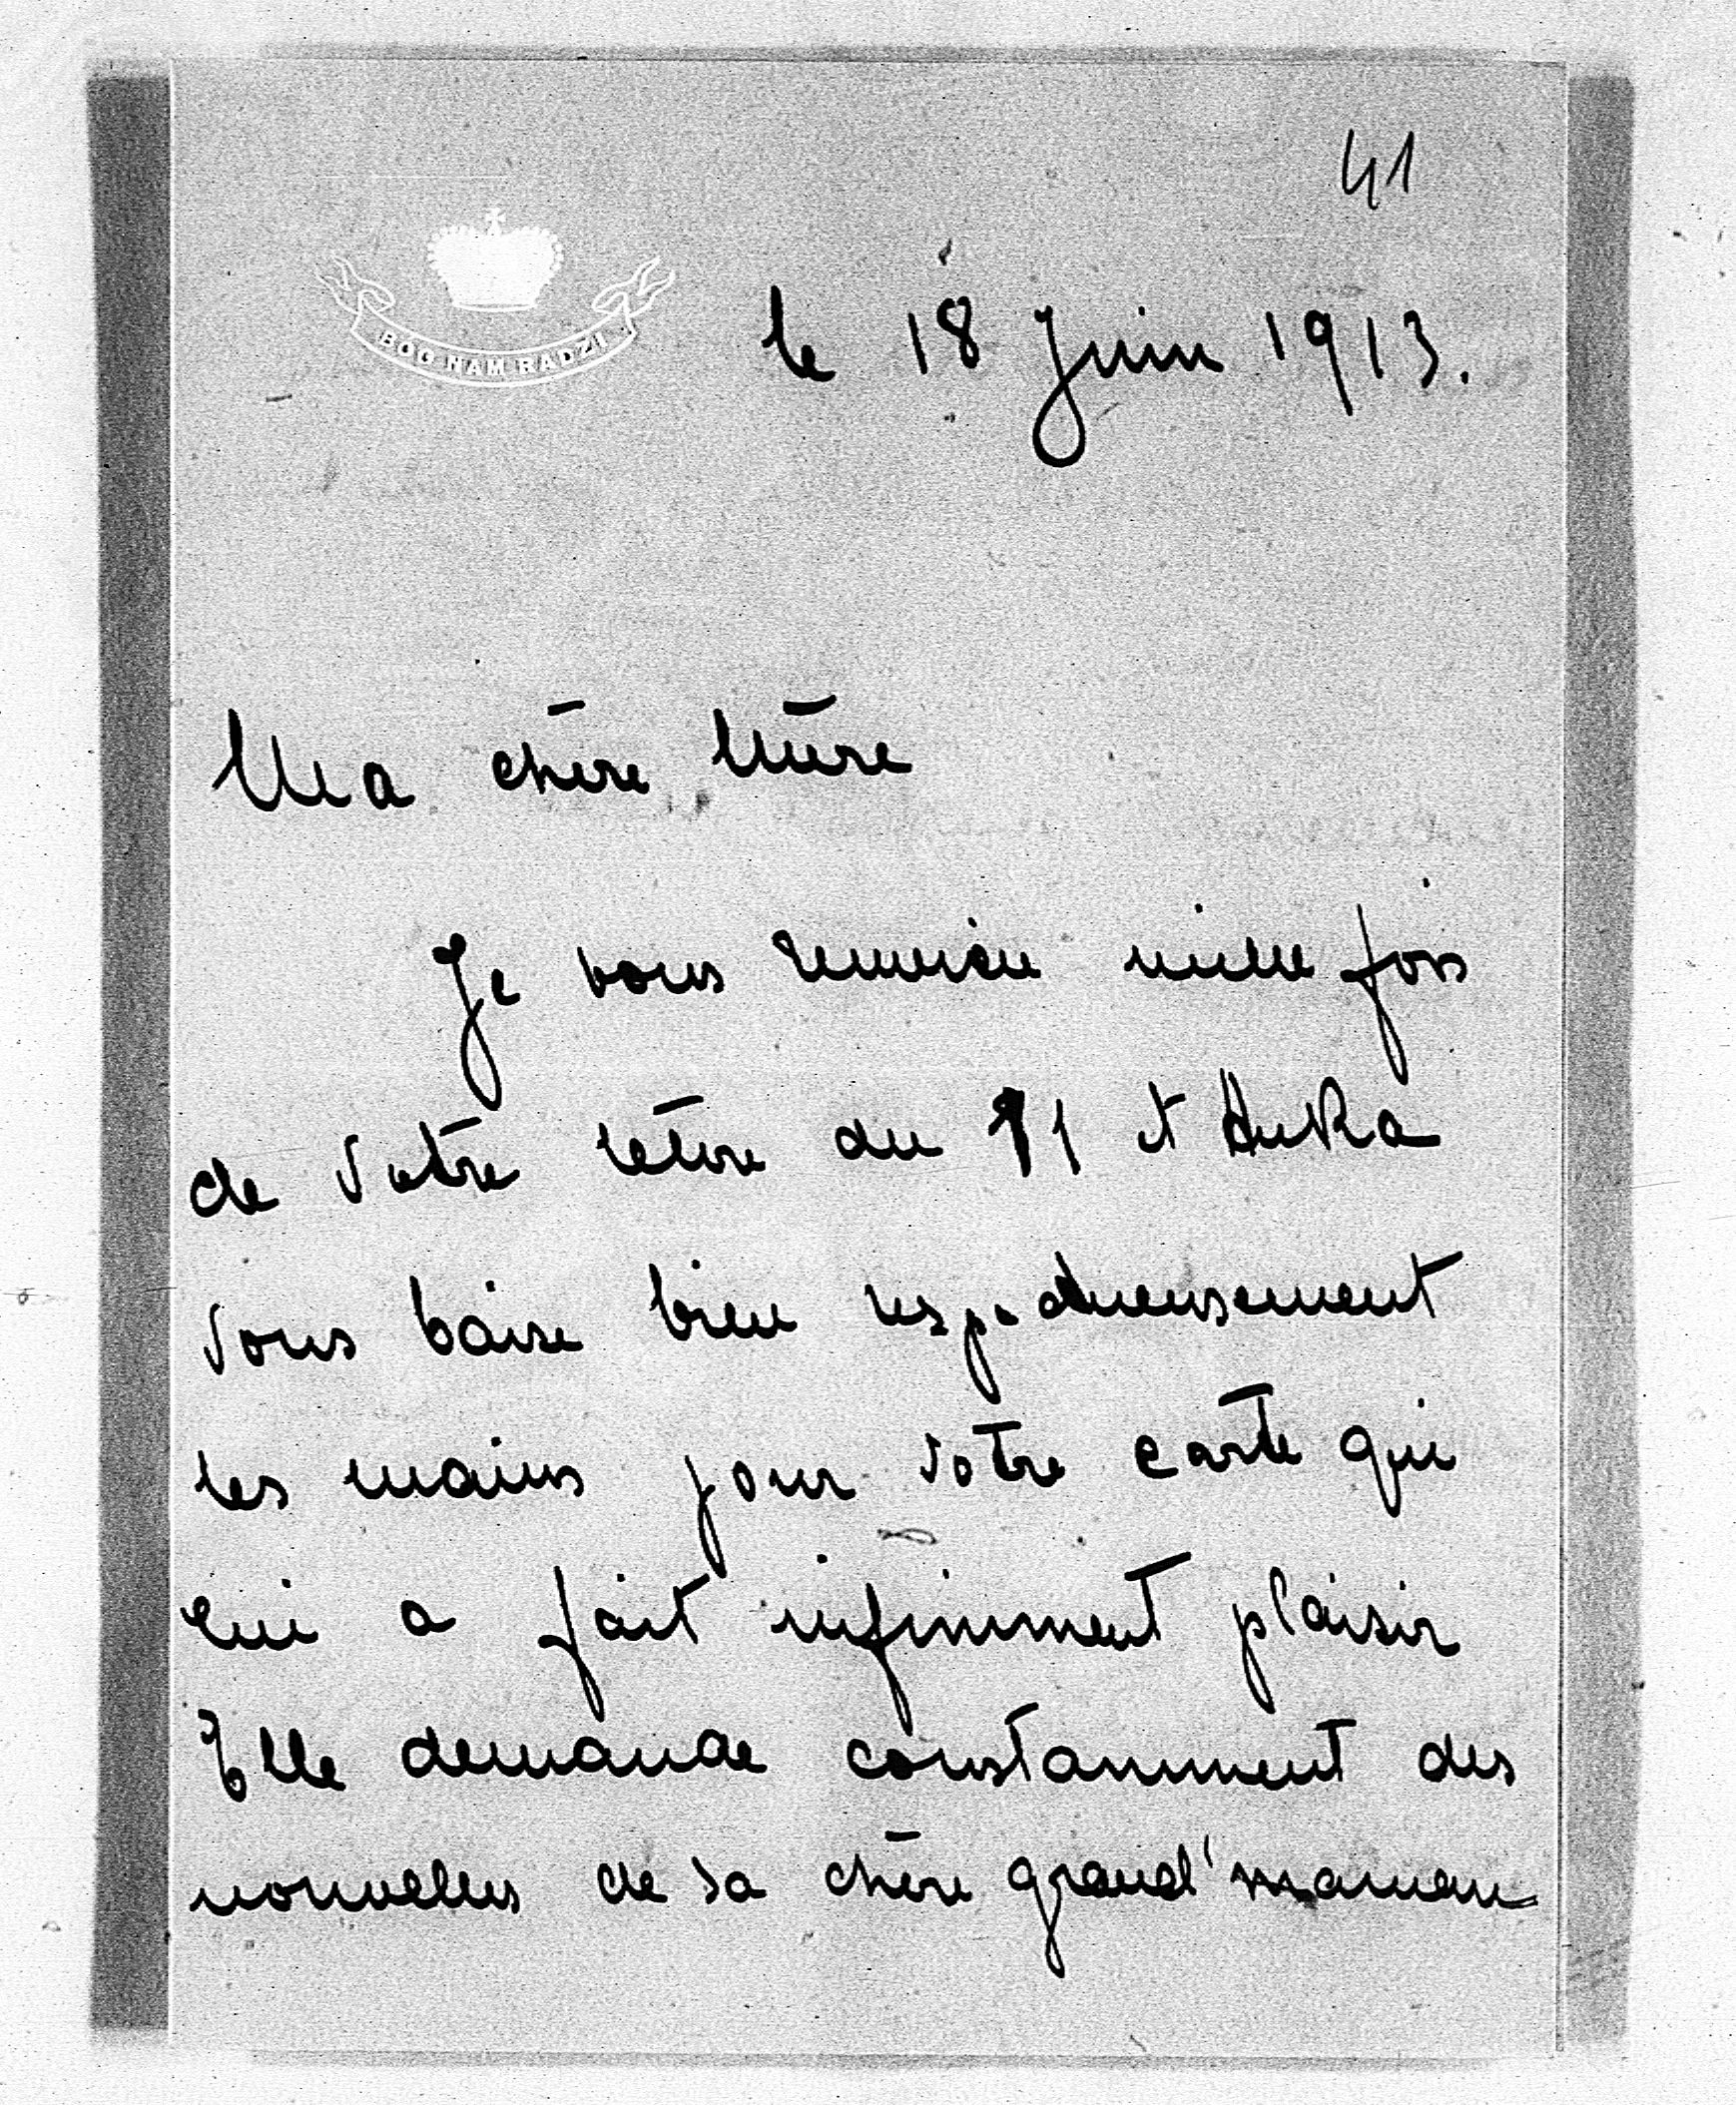 41
BÓG NAM RADZI
le 18 Juin 1913.
Ma chère Mère
Je vous remercie mille fois
de votre lettre du 11 et Anka
vous baise bien respectueusement
les mains pour votre carte qui
lui a fait infiniment plaisir
Elle demande constamment des
nouvelles de sa chère grand'maman